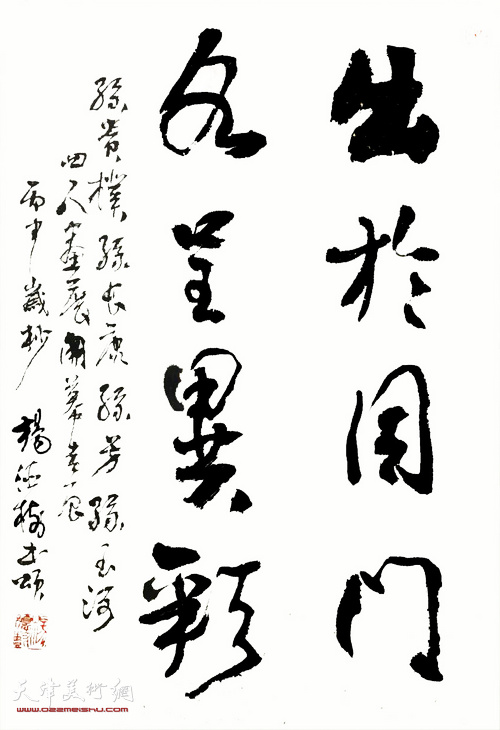 出於同门
各呈異彩
孫贵樸孫長康孫芳孫玉河
四人畫展開幕志
丙申歲杪 楊德樹書頌
天津美術網
www.022meishu.com